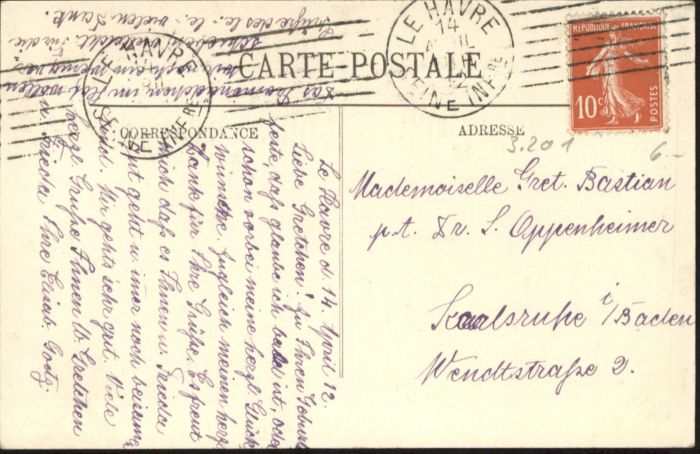 CARTE POSTALE
CORRESPONDANCE
ADRESSE
LE HAVRE
SEINE INFRE
14
LE HAVRE
SEINE INFRE
REPUBLIQUE FRANÇAISE
10c
POSTES
3.201
6-
Mademoiselle Gret. Bastian
p.t. Dr. S. Oppenheimer
Karlsruhe i/Baden
Wendtstraße 2.
Le Havre d. 14. April 12.
Liebe Gretchen! Zu Ihrem Geburts
feste, daß glaube ich bald ist, oder
schon vorbei meine herzl. Glück
wünsche. Zugleich meinen herzl.
Dank für Ihre Grüße. Es freut
mich daß es Ihnen u. Frieda
gut geht u. imer noch beisamm
sind. Mir gehts sehr gut. Viele
herzl. Grüße Ihnen lb. Gretchen
u. Frieda Ihre Elisab. Goetz.
Das
wollen
noch ein wenig
vielen Dank.